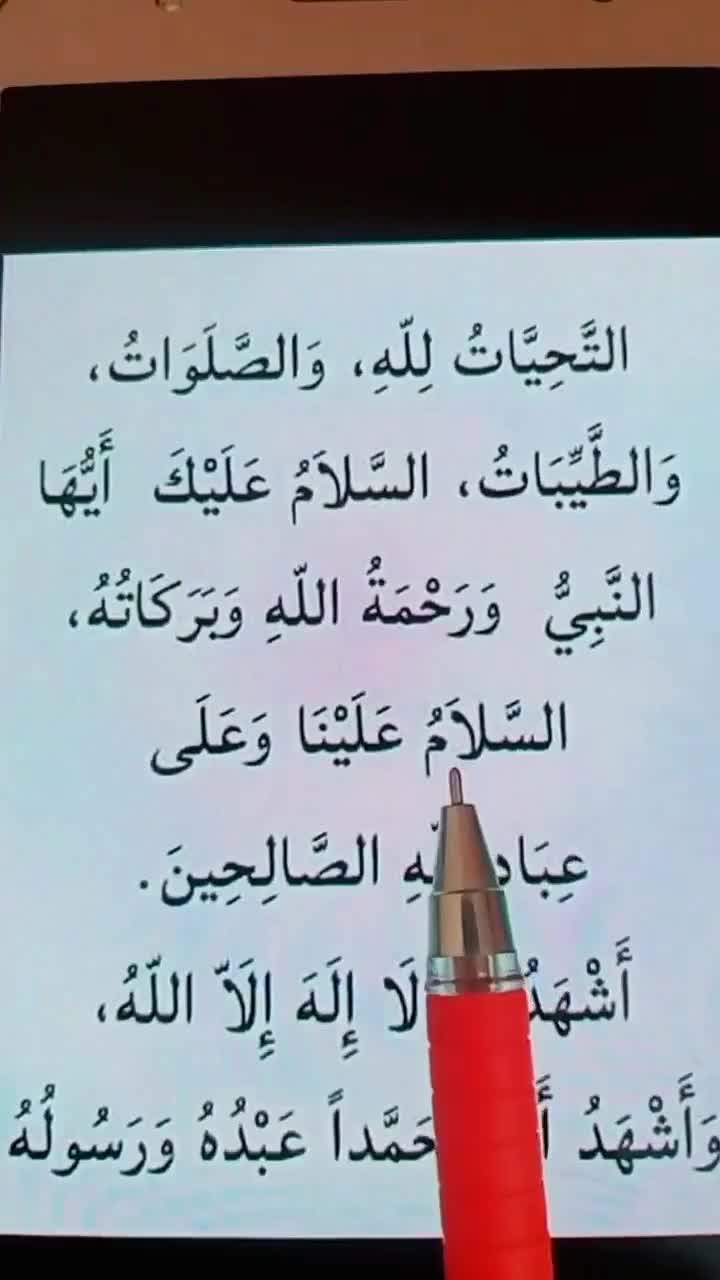 التَّحِيَّاتُ لِلّهِ، وَالصَّلَوَاتُ،
وَالطَّيِّبَاتُ، السَّلاَمُ عَلَيْكَ أَيُّهَا
النَّبِيُّ وَرَحْمَةُ اللّهِ وَبَرَكَاتُهُ،
السَّلاَمُ عَلَيْنَا وَعَلَى
الصَّالِحِينَ.
أَشْهَدُ لَا إِلَهَ إِلاَّ اللّهُ،
وَأَشْهَدُ عَبْدُهُ وَرَسُولُهُ